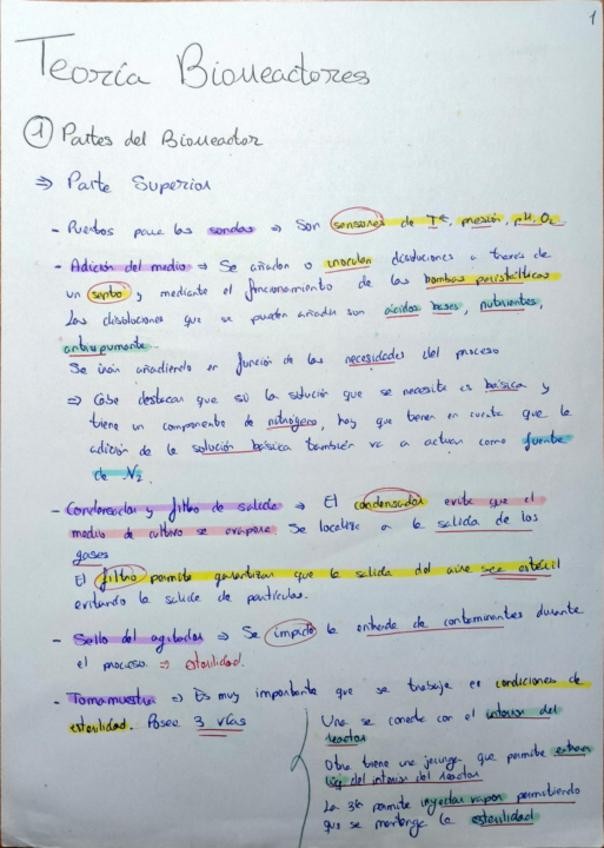 1
Teoría Bioreactores
① Partes del Bioreactor
⇒ Parte Superior
- Puertos para las sondas ⇒ Son sensores de Tª, presión, pH, O2
- Adición del medio ⇒ Se añaden o inoculan disoluciones a través de
un septo y mediante el funcionamiento de las bombas peristálticas
Las disoluciones que se pueden añadir son ácidos bases, nutrientes,
antiespumante.
Se irán añadiendo en función de las necesidades del proceso
⇒ Cabe destacar que si la solución que se necesita es básica y
tiene un componente de nitrógeno, hay que tener en cuenta que la
adición de la solución básica también va a actuar como fuente
de N2.
- Condensador y filtro de salida ⇒ El condensador evita que el
medio de cultivo se evapore Se localiza a la salida de los
gases
El filtro permite garantizar que la salida del aire sea estéril
evitando la salida de partículas.
- Sello del agitador ⇒ Se impide la entrada de contaminantes durante
el proceso. ⇒ esterilidad.
- Tomamuestra ⇒ Es muy importante que se trabaje en condiciones de
esterilidad. Posee 3 vías
Una se conecta con el interior del
reactor
Otra tiene una jeringa que permite extraer
líq del interior del reactor
La 3ª permite inyectar vapor permitiendo
que se mantenga la esterilidad